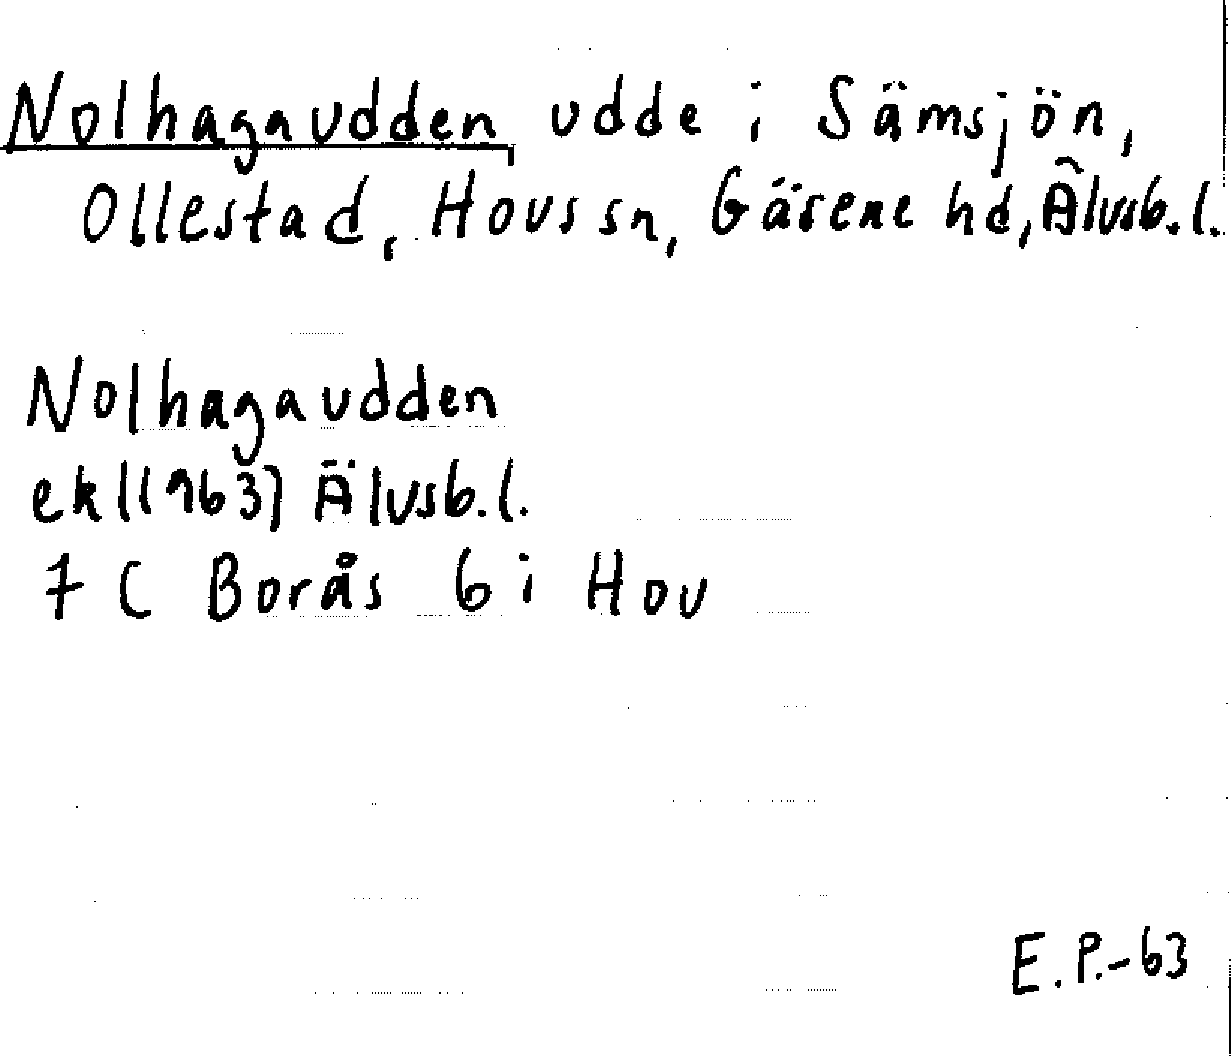 Nolhagaudden, udde i Sämsjön,
Ollestad, Hovs sn, Gäsene hd, Älvsb. l.
Nolhagaudden
ekl(1963) Älvsb. l.
7 C Borås 6 i Hov
E.P.-63